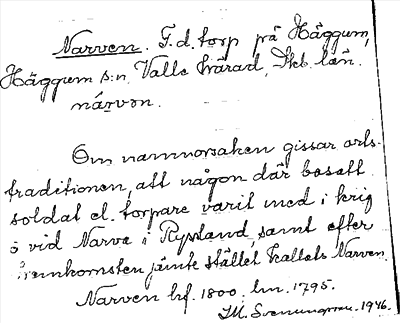 Narven. F.d. torp på Häggum,
Häggum s:n, Valle härad, Skb. län.
nárvon.
Om namnorsaken gissar orts-
traditionen, att någon där bosatt
soldat el. torpare varit med i krig
o vid Narva i Ryssland, samt efter
hemkomsten jämte stället kallats Narven.
Narven hf. 1800. hm. 1795.
M. Svenungsson. 1946.